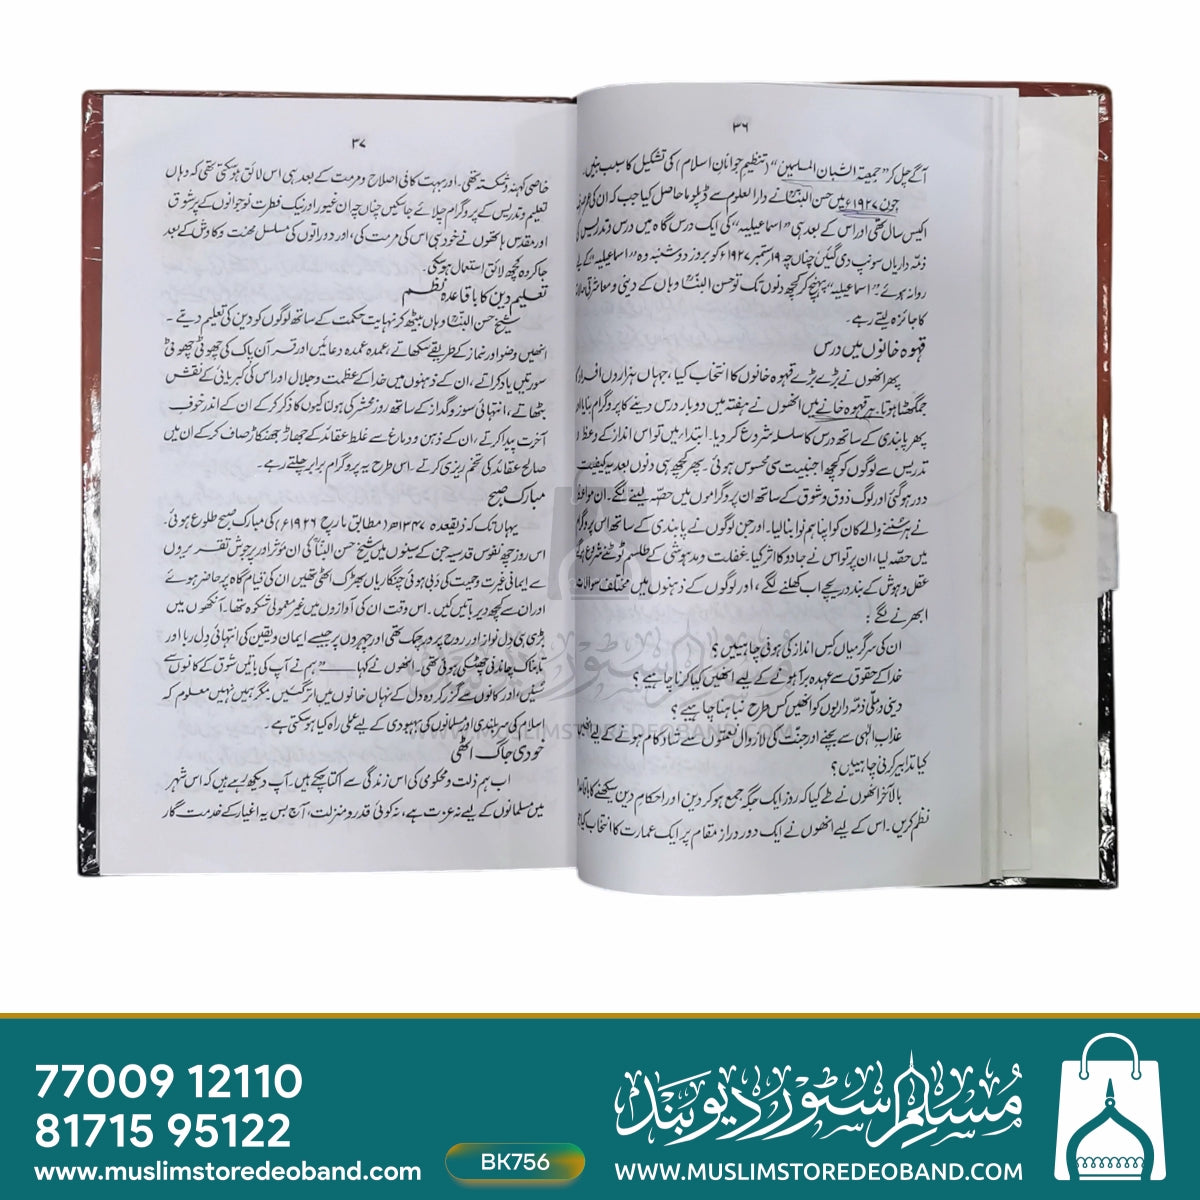 ۳۶
آگے چل کر "جمعیۃ الشبان المسلمین" (تنظیم جوانان اسلام) کی تشکیل کا سبب بنیں۔
جون ۱۹۲۷ء میں حسن البناؒ نے دارالعلوم سے ڈپلوما حاصل کیا جب کہ ان کی عمر
اکیس سال تھی اور اس کے بعد ہی "اسماعیلیہ" کی ایک درس گاہ میں درس و تدریس کی
ذمہ داریاں سونپ دی گئیں چناں چہ ۱۹ ستمبر ۱۹۲۷ء کو بروز دوشنبہ وہ "اسماعیلیہ" کے لیے
روانہ ہوئے۔ "اسماعیلیہ" پہنچ کر کچھ دنوں تک تو حسن البناؒ وہاں کے دینی و معاشرتی حالات
کا جائزہ لیتے رہے۔
قہوہ خانوں میں درس
پھر انھوں نے بڑے بڑے قہوہ خانوں کا انتخاب کیا، جہاں ہزاروں افراد کا
جمگھٹا ہوتا۔ ہر قہوہ خانے میں انھوں نے ہفتہ میں دوبار درس دینے کا پروگرام بنایا اور
پھر پابندی کے ساتھ درس کا سلسلہ شروع کر دیا۔ ابتداء میں تو اس انداز کے وعظ و
تدریس سے لوگوں کو کچھ اجنبیت سی محسوس ہوئی۔ پھر کچھ ہی دنوں بعد یہ کیفیت
دور ہو گئی اور لوگ ذوق و شوق کے ساتھ ان پروگراموں میں حصہ لینے لگے۔ ان مواعظ
نے ہر سننے والے کان کو اپنا ہم نوا بنا لیا۔ اور جن لوگوں نے پابندی کے ساتھ اس پروگرام
میں حصہ لیا، ان پر تو اس نے جادو کا اثر کیا۔ غفلت و مدہوشی کے طلسم ٹوٹنے شروع ہو گئے
عقل و ہوش کے بند دریچے اب کھلنے لگے، اور لوگوں کے ذہنوں میں مختلف سوالات
ابھرنے لگے:
ان کی سرگرمیاں کس انداز کی ہونی چاہییں؟
خدا کے حقوق سے عہدہ برآ ہونے کے لیے انھیں کیا کرنا چاہیے؟
دینی و ملی ذمہ داریوں کو انھیں کس طرح نبھانا چاہیے؟
عذاب الٰہی سے بچنے اور جنت کی لازوال نعمتوں سے شادکام ہونے کے لیے انھیں
کیا تدابیر کرنی چاہییں؟
بالآخر انھوں نے طے کیا کہ روز ایک جگہ جمع ہو کر دین اور احکام دین سیکھنے کا باقاعدہ
نظم کریں۔ اس کے لیے انھوں نے ایک دور دراز مقام پر ایک عمارت کا انتخاب کیا جو
۳۷
خاصی کہنہ و شکستہ تھی۔ اور بہت کافی اصلاح و مرمت کے بعد ہی اس لائق ہو سکتی تھی کہ وہاں
تعلیم و تدریس کے پروگرام چلائے جا سکیں چناں چہ ان غیور اور نیک فطرت نوجوانوں کے پرشوق
اور مقدس ہاتھوں نے خود ہی اس کی مرمت کی، اور دو راتوں کی مسلسل محنت و کاوش کے بعد
جا کر وہ کچھ لائق استعمال ہو سکی۔
تعلیم دین کا باقاعدہ نظم
شیخ حسن البناؒ وہاں بیٹھ کر نہایت حکمت کے ساتھ لوگوں کو دین کی تعلیم دیتے۔
انھیں وضو اور نماز کے طریقے سکھاتے، عمدہ عمدہ دعائیں اور قرآن پاک کی چھوٹی چھوٹی
سورتیں یاد کراتے، ان کے ذہنوں میں خدا کے عظمت و جلال اور اس کی کبریائی کے نقش
بٹھاتے، انتہائی سوز و گداز کے ساتھ روز محشر کی ہولناکیوں کا ذکر کر کے ان کے اندر خوف
آخرت پیدا کرتے، ان کے ذہن و دماغ سے غلط عقائد کے جھاڑ جھنکاڑ صاف کر کے ان میں
صالح عقائد کی تخم ریزی کرتے۔ اس طرح یہ پروگرام برابر چلتے رہے۔
مبارک صبح
یہاں تک کہ ذیقعدہ ۱۳۴۷ھ (مطابق مارچ ۱۹۲۶ء) کی مبارک صبح طلوع ہوئی۔
اس روز چھ نفوس قدسیہ جن کے سینوں میں شیخ حسن البناؒ کی ان مؤثر اور پرجوش تقریروں
سے ایمانی غیرت و حمیت کی دبی ہوئی چنگاریاں بھڑک اٹھی تھیں ان کی قیام گاہ پر حاضر ہوئے
اور ان سے کچھ دیر باتیں کیں۔ اس وقت ان کی آوازوں میں غیر معمولی شکوہ تھا۔ آنکھوں میں
بڑی ہی دل نواز اور روح پرور چمک تھی اور چہروں پر جیسے ایمان و یقین کی انتہائی دل ربا اور
تابناک چاندنی چھٹکی ہوئی تھی۔ انھوں نے کہا —— "ہم نے آپ کی باتیں شوق کے کانوں سے
سنیں، اور کانوں سے گزر کر وہ دل کے نہاں خانوں میں اتر گئیں مگر ہمیں نہیں معلوم کہ
اسلام کی سربلندی اور مسلمانوں کی بہبودی کے لیے عملی راہ کیا ہو سکتی ہے۔
خودی جاگ اٹھی
اب ہم ذلت و محکومی کی اس زندگی سے اکتا چکے ہیں۔ آپ دیکھ رہے ہیں کہ اس شہر
میں مسلمانوں کے لیے نہ عزت ہے، نہ کوئی قدر و منزلت، آج بس یہ اغیار کے خدمت گار
WWW.MUSLIMSTOREDEOBAND.COM
77009 12110
81715 95122
www.muslimstoredeoband.com
BK756
مسلم سٹور دیوبند
WWW.MUSLIMSTOREDEOBAND.COM